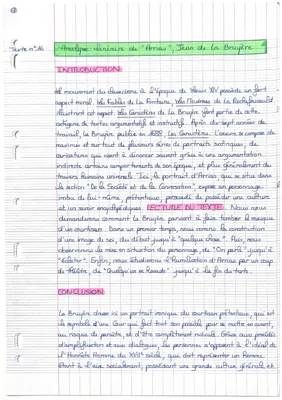 Texte n°16
Analyse linéaire de "Arrias", Jean de La Bruyère
INTRODUCTION
Le mouvement du classicisme à l'époque de Louis XIV possède un fort
aspect moral. Les Fables de La Fontaine, Les Maximes de La Rochefoucauld
illustrent cet aspect. Les Caractères de La Bruyère font partie de cette
catégorie de textes argumentatifs et instructifs. Après dix-sept années de
travail, La Bruyère publie en 1688, Les Caractères. L'oeuvre se compose de
maximes et surtout de plusieurs séries de portraits satiriques, de
caricatures qui visent à dénoncer souvent grâce à une argumentation
indirecte certains comportements de son époque, et plus généralement du
travers humains universels. Ici, le portrait d'Arrias, qui se situe dans
la section "De la Société et de la Conversation", expose un personnage
imbu de lui-même, prétentieux, persuadé de posséder une culture
et un savoir encyclopédiques. LECTURE DU TEXTE. Nous nous
demanderons comment La Bruyère parvient à faire tomber le masque
d'un courtisan. Dans un premier temps, nous verrons la construction
d'une image de soi, du début jusqu'à "quelque chose". Puis, nous
observerons la mise en situation du personnage, de "On parle" jusqu'à
"éclater". Enfin, nous étudierons l'humiliation d'Arrias par un coup
de théâtre, de "Quelqu'un se hasarde" jusqu'à la fin du texte.
CONCLUSION
La Bruyère dresse ici un portrait ironique du courtisan prétentieux, qui est
le symbole d'une Cour qui fait tout son possible pour se mettre en avant,
au risque de paraître, et d'être complètement ridicule. Grâce aux procédés
d'amplification et aux dialogues, les personnages s'opposent à l'idéal de
l'Honnête Homme du XVIIe siècle, qui doit représenter un Homme
étant à l'aise socialement, possédant une grande culture générale et